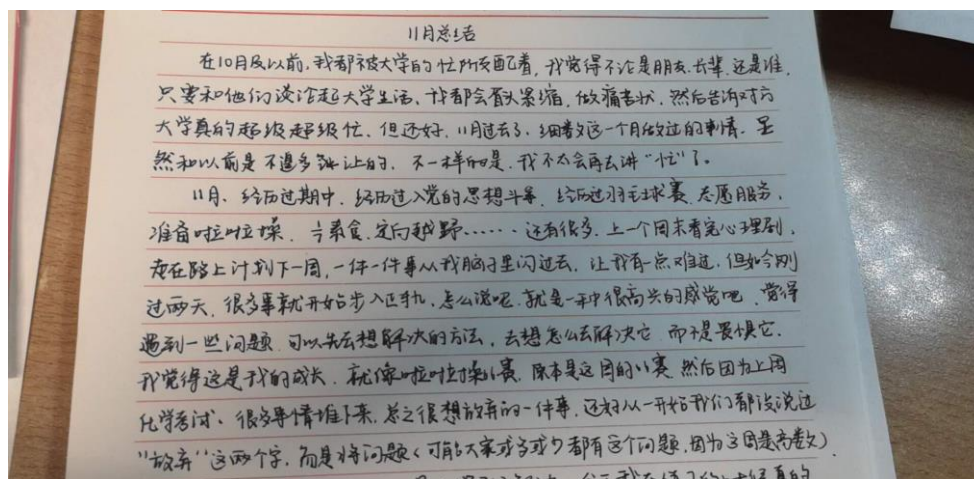 11月总结
在10月及以前,我都被大学的忙所支配着,我觉得不论是朋友、长辈、还是谁,
只要和他们谈论起大学生活、我都会眉头紧缩,做痛苦状,然后告诉对方
大学真的超级超级忙、但还好,11月过去了,细数这一个月做过的事情、虽
然和以前是不遑多让的,不一样的是,我不太会再去讲“忙”了。
11月、经历过期中,经历过入党的思想斗争,经历过羽毛球赛、志愿服务、
准备啦啦操、素食、定向越野……还有很多,上一个周末看完心理剧,
走在路上计划下一周,一件一件事从我脑子里闪过去,让我有一点难过,但如今刚
过两天,很多事就开始步入正轨,怎么说呢,就是一种很高兴的感觉吧,觉得
遇到一些问题,可以先去想解决的方法,去想怎么去解决它,而不是畏惧它.
我觉得这是我的成长,就像啦啦操比赛,原本是这周的比赛,然后因为上周
化学考试、很多事情堆下来,总之很想放弃的一件事,还好从一开始我们都没说过
“放弃”这两个字,而是将问题(可能大家或多或少都有这个问题,因为这周是高数)